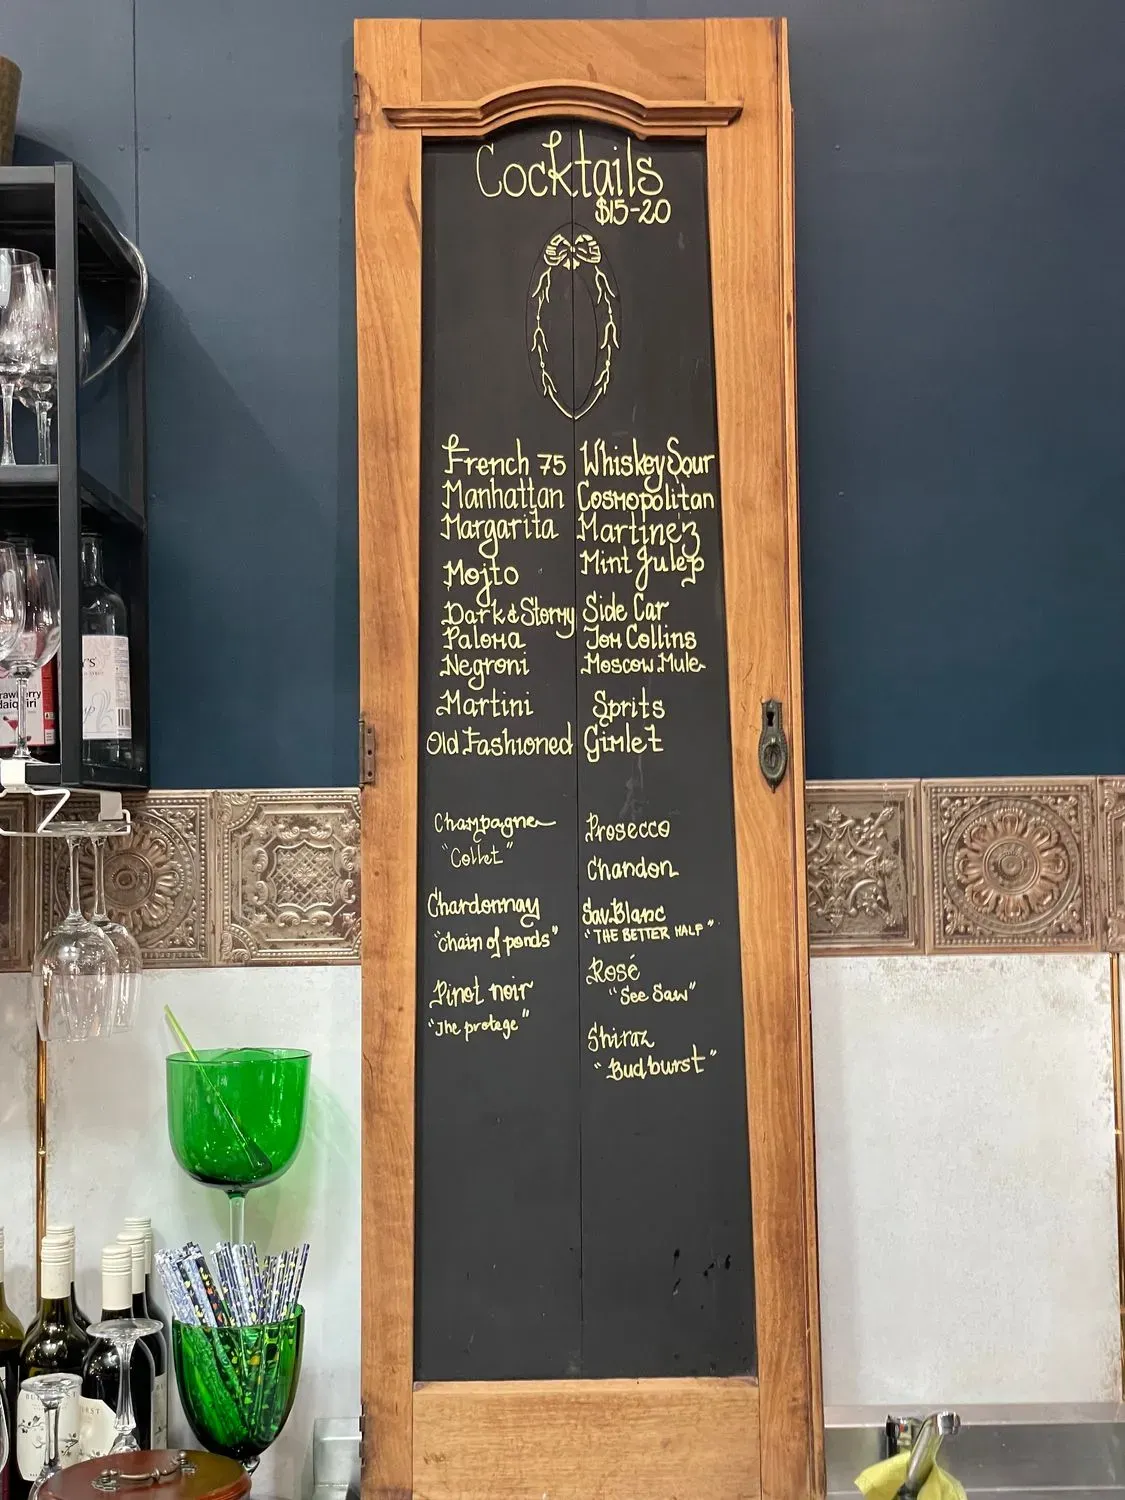 Cocktails
$15-20
French 75
Manhattan
Margarita
Mojto
Dark & Stormy
Paloma
Negroni
Martini
Old Fashioned
Whiskey Sour
Cosmopolitan
Martinez
Mint Julep
Side Car
Tom Collins
Moscow Mule
Sprits
Gimlet
Champagne
"Collet"
Chardonnay
"Chain of ponds"
Pinot noir
"The protege"
Prosecco
Chandon
Sav.Blanc
"THE BETTER HALF"
Rosé
"See Saw"
Shiraz
"Budburst"